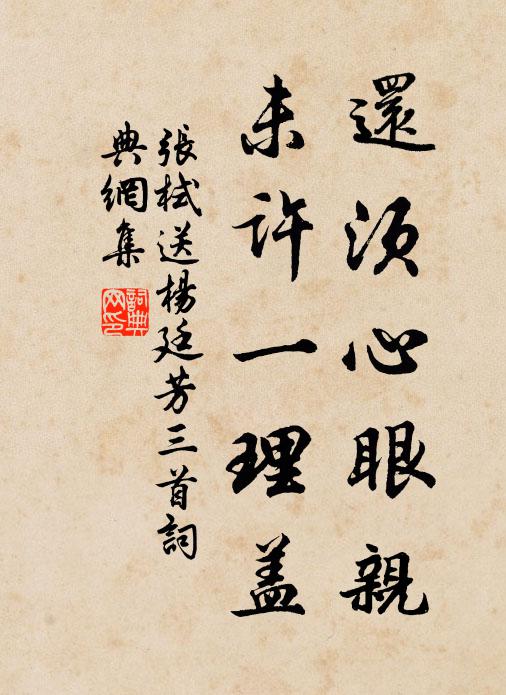 還須心眼親
未許一理盖
張栻送楊廷芳三首詞
典網集
詞典
网印